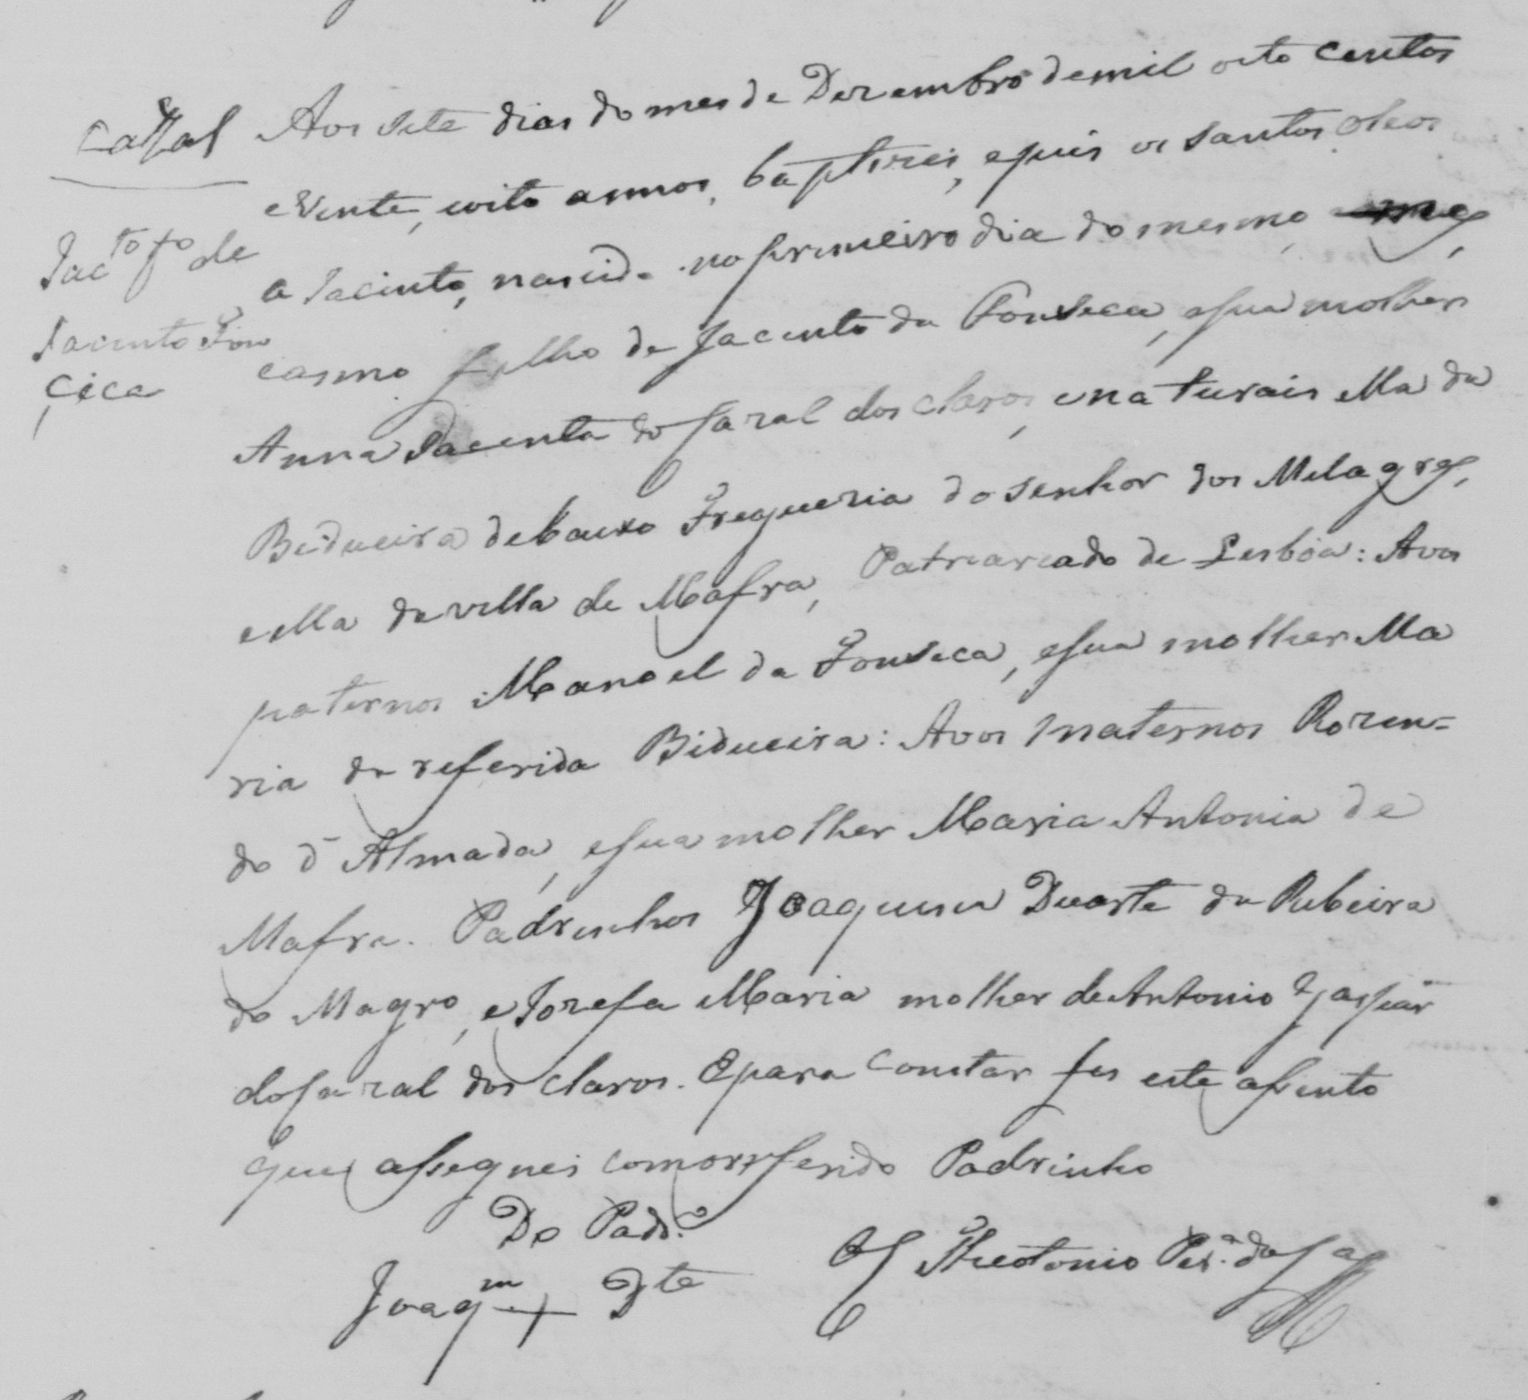 Cassal
Jac.to f.o de
Jacinto Fon
ceca
Aos sete dias do mes de Dezembro de mil oito centos
e Vinte, e oito annos, baptizei, e puis os santos oleos
a Jacinto, nascido no primeiro dia do mesmo mez,
e anno filho de Jacinto da Fonseca, e sua molher
Anna Jacinta do Cazal dos claros, e naturais elle da
Bidueira de baixo Freguezia do Senhor dos Milagres,
e ella da villa de Mafra, Patriarcado de Lisboa: Avos
paternos Manoel da Fonseca, e sua molher Ma
ria da referida Bidueira: Avos maternos Rozen-
do d' Almada, e sua molher Maria Antonia de
Mafra. Padrinhos Joaquim Duarte da Ribeira
do Magro, e Jozefa Maria molher de Antonio Gaspar
do Cazal dos Claros. E para constar fis este assento
que assegnei com o refferido Padrinho
Do Padr.o
Joaq.m + D.te
O Theotonio Per.a da